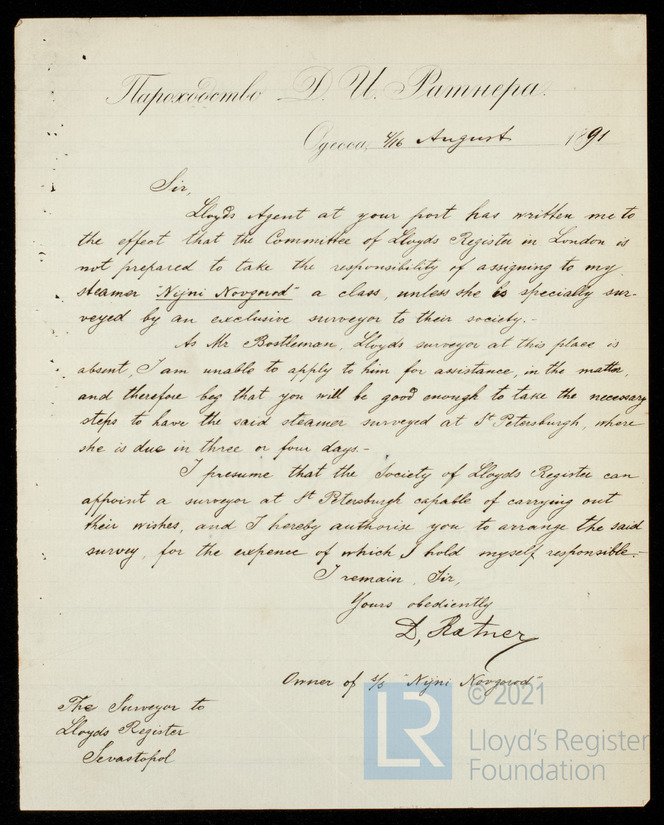 Пароходство Д. И. Ратнера.
Одесса, 4/16 August 1891
Sir,
Lloyds Agent at your port has written me to
the effect that the Committee of Lloyds Register in London is
not prepared to take the responsibility of assigning to my
steamer "Nijni Novgorod" a class, unless she is specially sur-
veyed by an exclusive surveyor to their society.-
As Mr Bostleman, Lloyds surveyor at this place is
absent, I am unable to apply to him for assistance, in the matter,
and therefore beg that you will be good enough to take the necessary
steps to have the said steamer surveyed at St Petersburgh, where
she is due in three or four days.-
I presume that the Society of Lloyds Register can
appoint a surveyor at St Petersburgh capable of carrying out
their wishes, and I hereby authorise you to arrange the said
survey, for the expence of which I hold myself responsible.-
I remain, Sir,
Yours obediently
D, Ratner
Owner of s/s "Nijni Novgorod"
The Surveyor to
Lloyds Register
Sevastopol
© 2021
LR
Lloyd's Register
Foundation